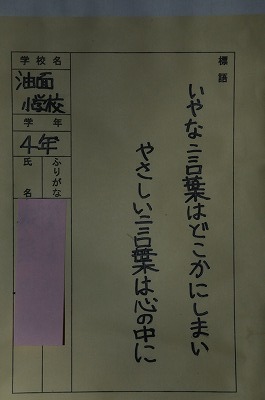 標語
いやな言葉はどこかにしまい
やさしい言葉は心の中に
学校名
油面
小学校
学年
4年
ふりがな
氏名